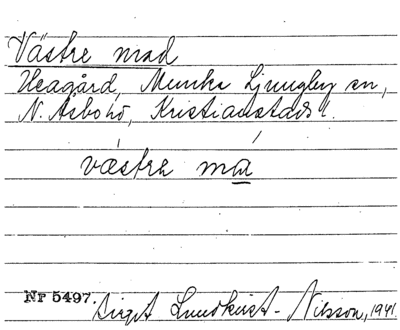 Västre mad
Heagård, Munka Ljungby sn,
N. Åsbo hd, Kristianstads l.
västre ma
Nr 5497. Birgit Lundkvist-Nilsson, 1941.